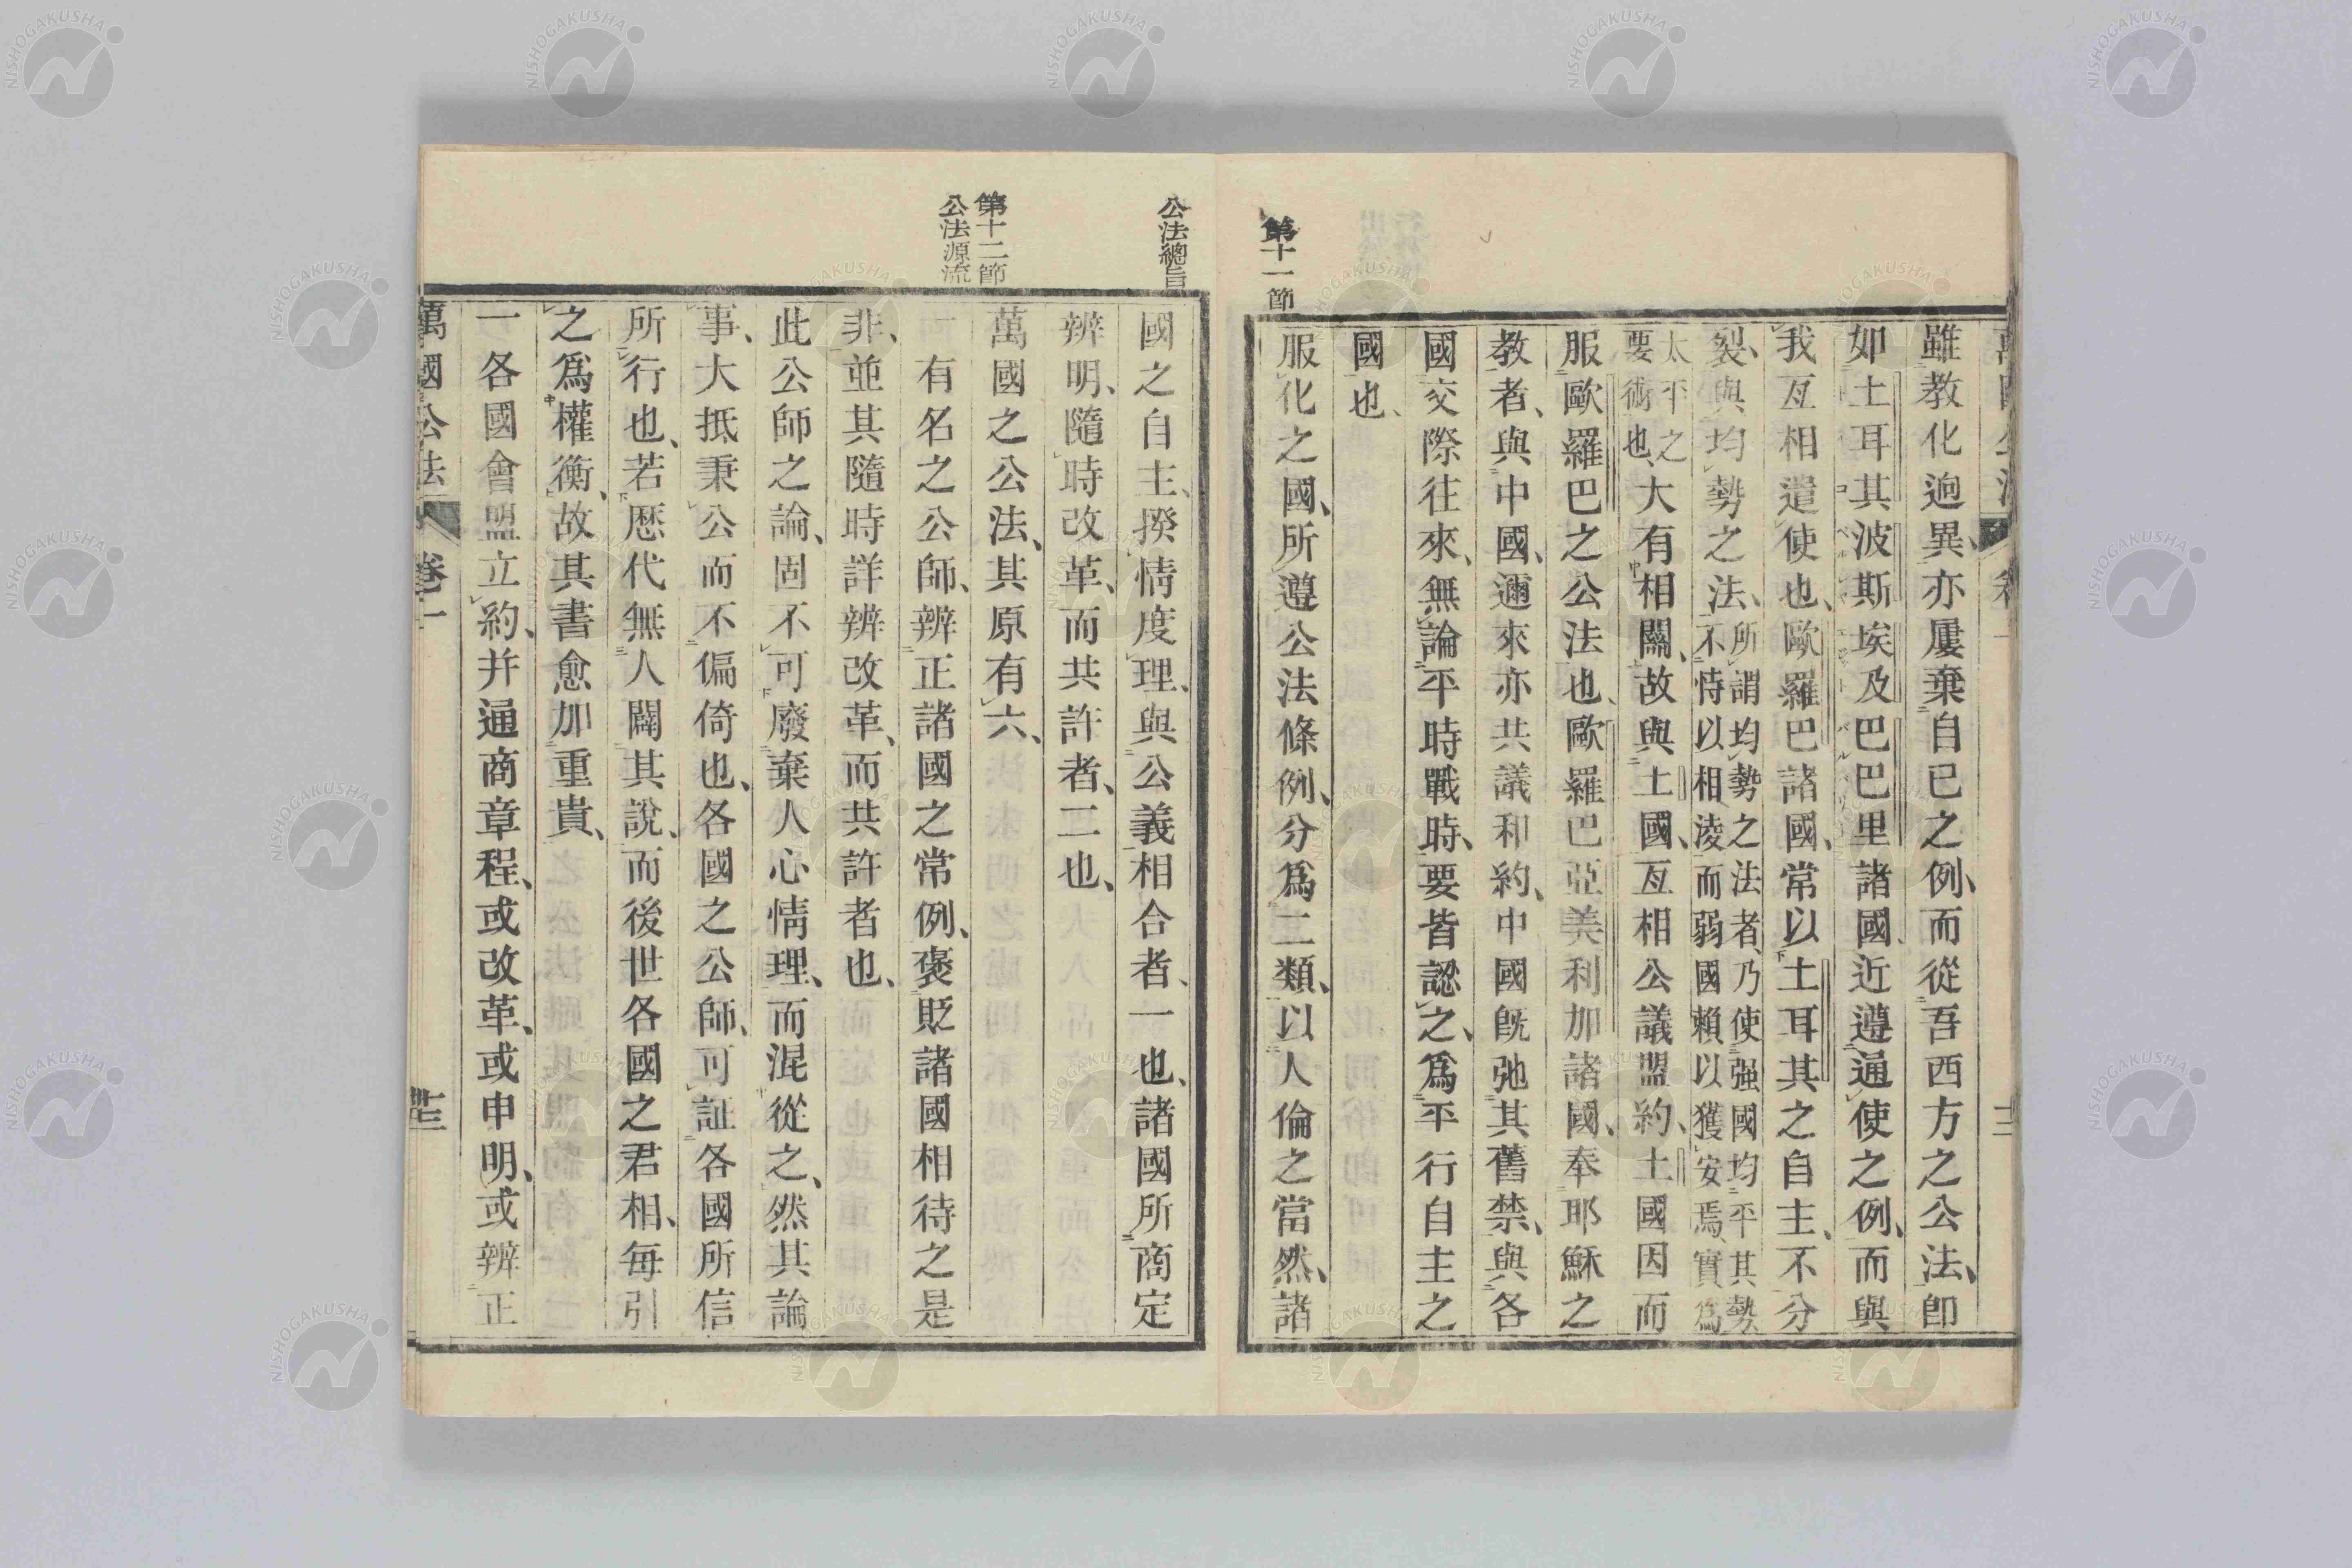 雖教化逈異、亦屢棄自己之例、而從吾西方之公法、卽
如土耳其波斯埃及巴巴里諸國、近遵通使之例、而與
我互相遣使也、歐羅巴諸國、常以土耳其之自主、不分
裂、與均勢之法、所謂均勢之法者、乃使强國均平其勢
不恃以相淩而弱國賴以獲安焉、實爲
太平之
要術也、大有相關、故與土國、互相公議盟約、土國因而
服歐羅巴之公法也、歐羅巴亞美利加諸國、奉耶穌之
教者、與中國、邇來亦共議和約、中國旣弛其舊禁、與各
國交際往來、無論平時戰時、要皆認之、爲平行自主之
國也、
第十一節
服化之國、所遵公法條例、分爲二類、以人倫之當然、諸
公法總旨
國之自主、揆情度理、與公義相合者、一也、諸國所商定
辨明、隨時改革、而共許者、二也、
第十二節
公法源流
萬國之公法、其原有六、
一有名之公師、辨正諸國之常例、褒貶諸國相待之是
非、並其隨時詳辨改革、而共許者也、
此公師之論、固不可廢棄人心情理、而混從之、然其論
事、大抵秉公而不偏倚也、各國之公師、可証各國所信
所行也、若歷代無人闢其說、而後世各國之君相、每引
之爲權衡、故其書愈加重貴、
一各國會盟立約、并通商章程、或改革、或申明、或辨正
萬國公法 卷一 十三